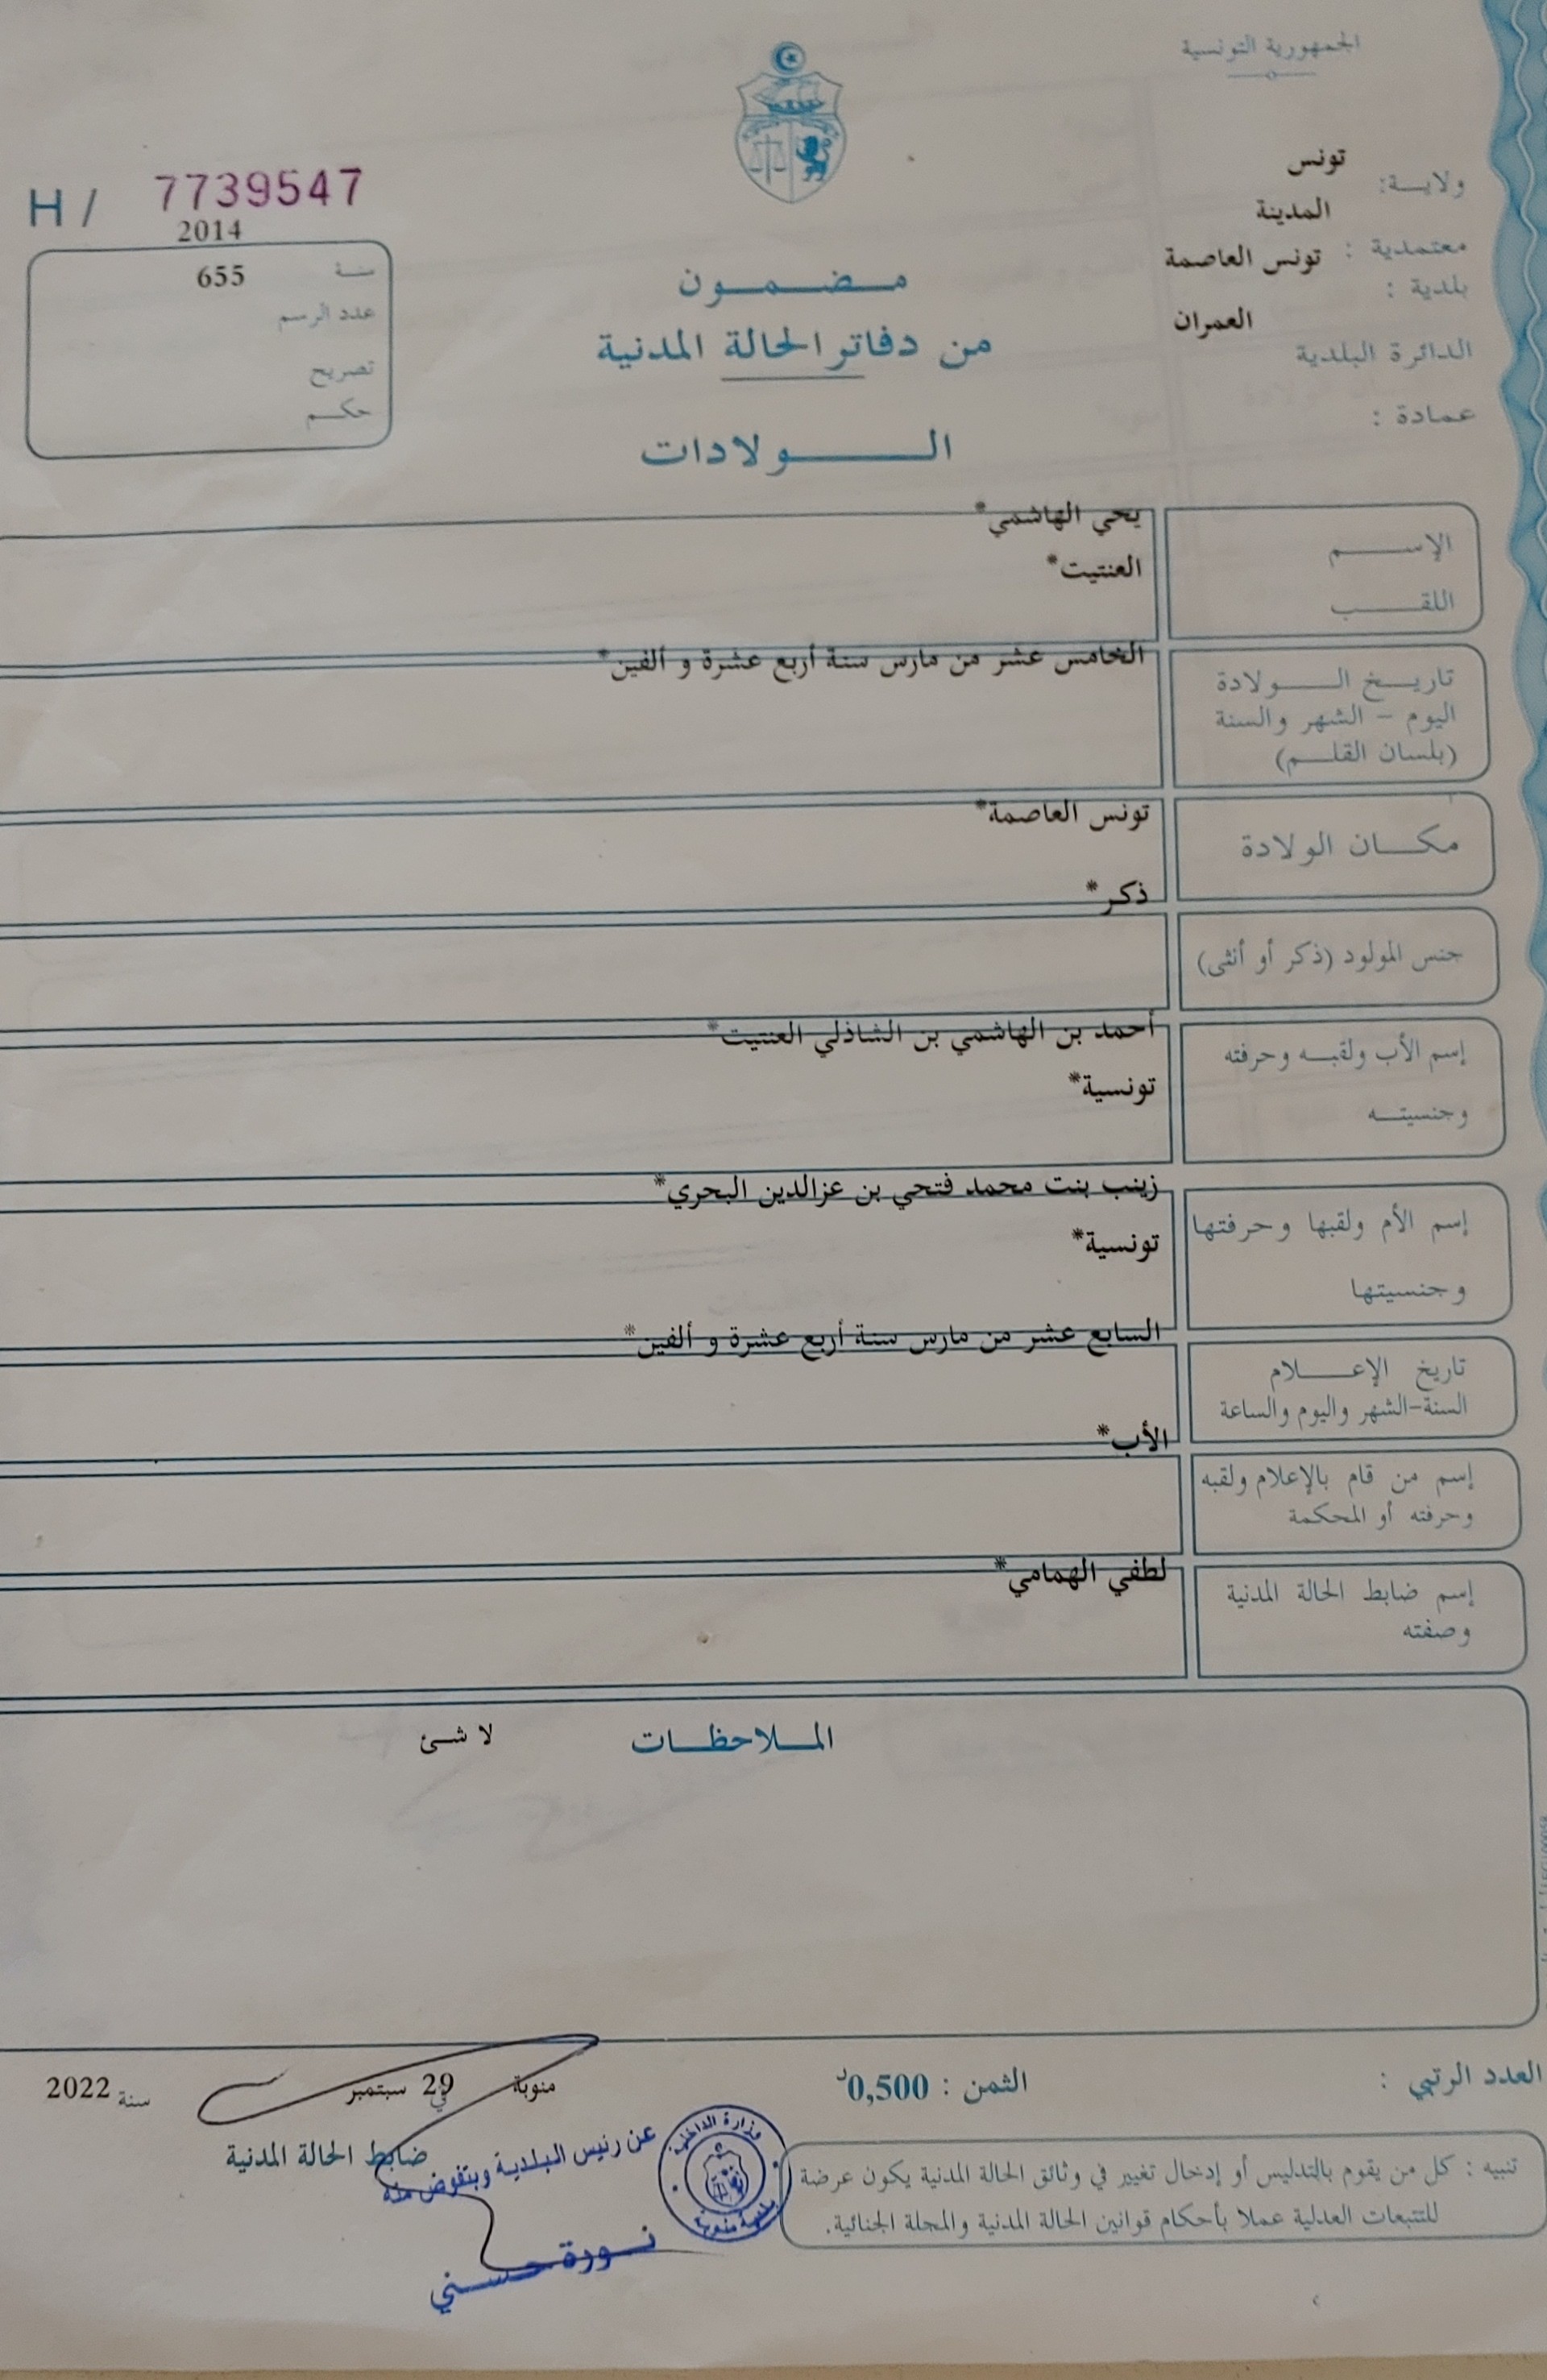 الجمهورية التونسية
ولايــة: تونس
معتمدية : المدينة
بلدية : تونس العاصمة
الدائرة البلدية العمران
عمادة :
H / 7739547
سنـة 2014
عدد الرسم 655
تصريح
حكـم
مـضـمـون
من دفاتر الحالة المدنية
الـولادات
الإســم يحي الهاشمي*
اللقـب العنتيت*
تاريـخ الـولادة الخامس عشر من مارس سنة أربع عشرة و ألفين*
اليوم - الشهر والسنة
(بلسان القلـم)
مكـان الولادة تونس العاصمة*
ذكر*
جنس المولود (ذكر أو أنثى)
إسم الأب ولقبـه وحرفته أحمد بن الهاشمي بن الشاذلي العنتيت*
وجنسيتـه تونسية*
إسم الأم ولقبها وحرفتها زينب بنت محمد فتحي بن عزالدين البحري*
وجنسيتها تونسية*
تاريخ الإعـلام السابع عشر من مارس سنة أربع عشرة و ألفين*
السنة-الشهر واليوم والساعة
الأب*
إسم من قام بالإعلام ولقبه
وحرفته أو المحكمة
إسم ضابط الحالة المدنية لطفي الهمامي*
وصفته
الملاحظـات لا شئ
العدد الرتبي :
الثمن : 0,500د
منوبة في 29 سبتمبر سنة 2022
ضابط الحالة المدنية
عن رئيس البلدية وبتفوض منه
نـورة حسـني
وزارة الداخلية
بلدية منوبة
تنبيه : كل من يقوم بالتدليس أو إدخال تغيير في وثائق الحالة المدنية يكون عرضة
للتتبعات العدلية عملا بأحكام قوانين الحالة المدنية والمجلة الجنائية.